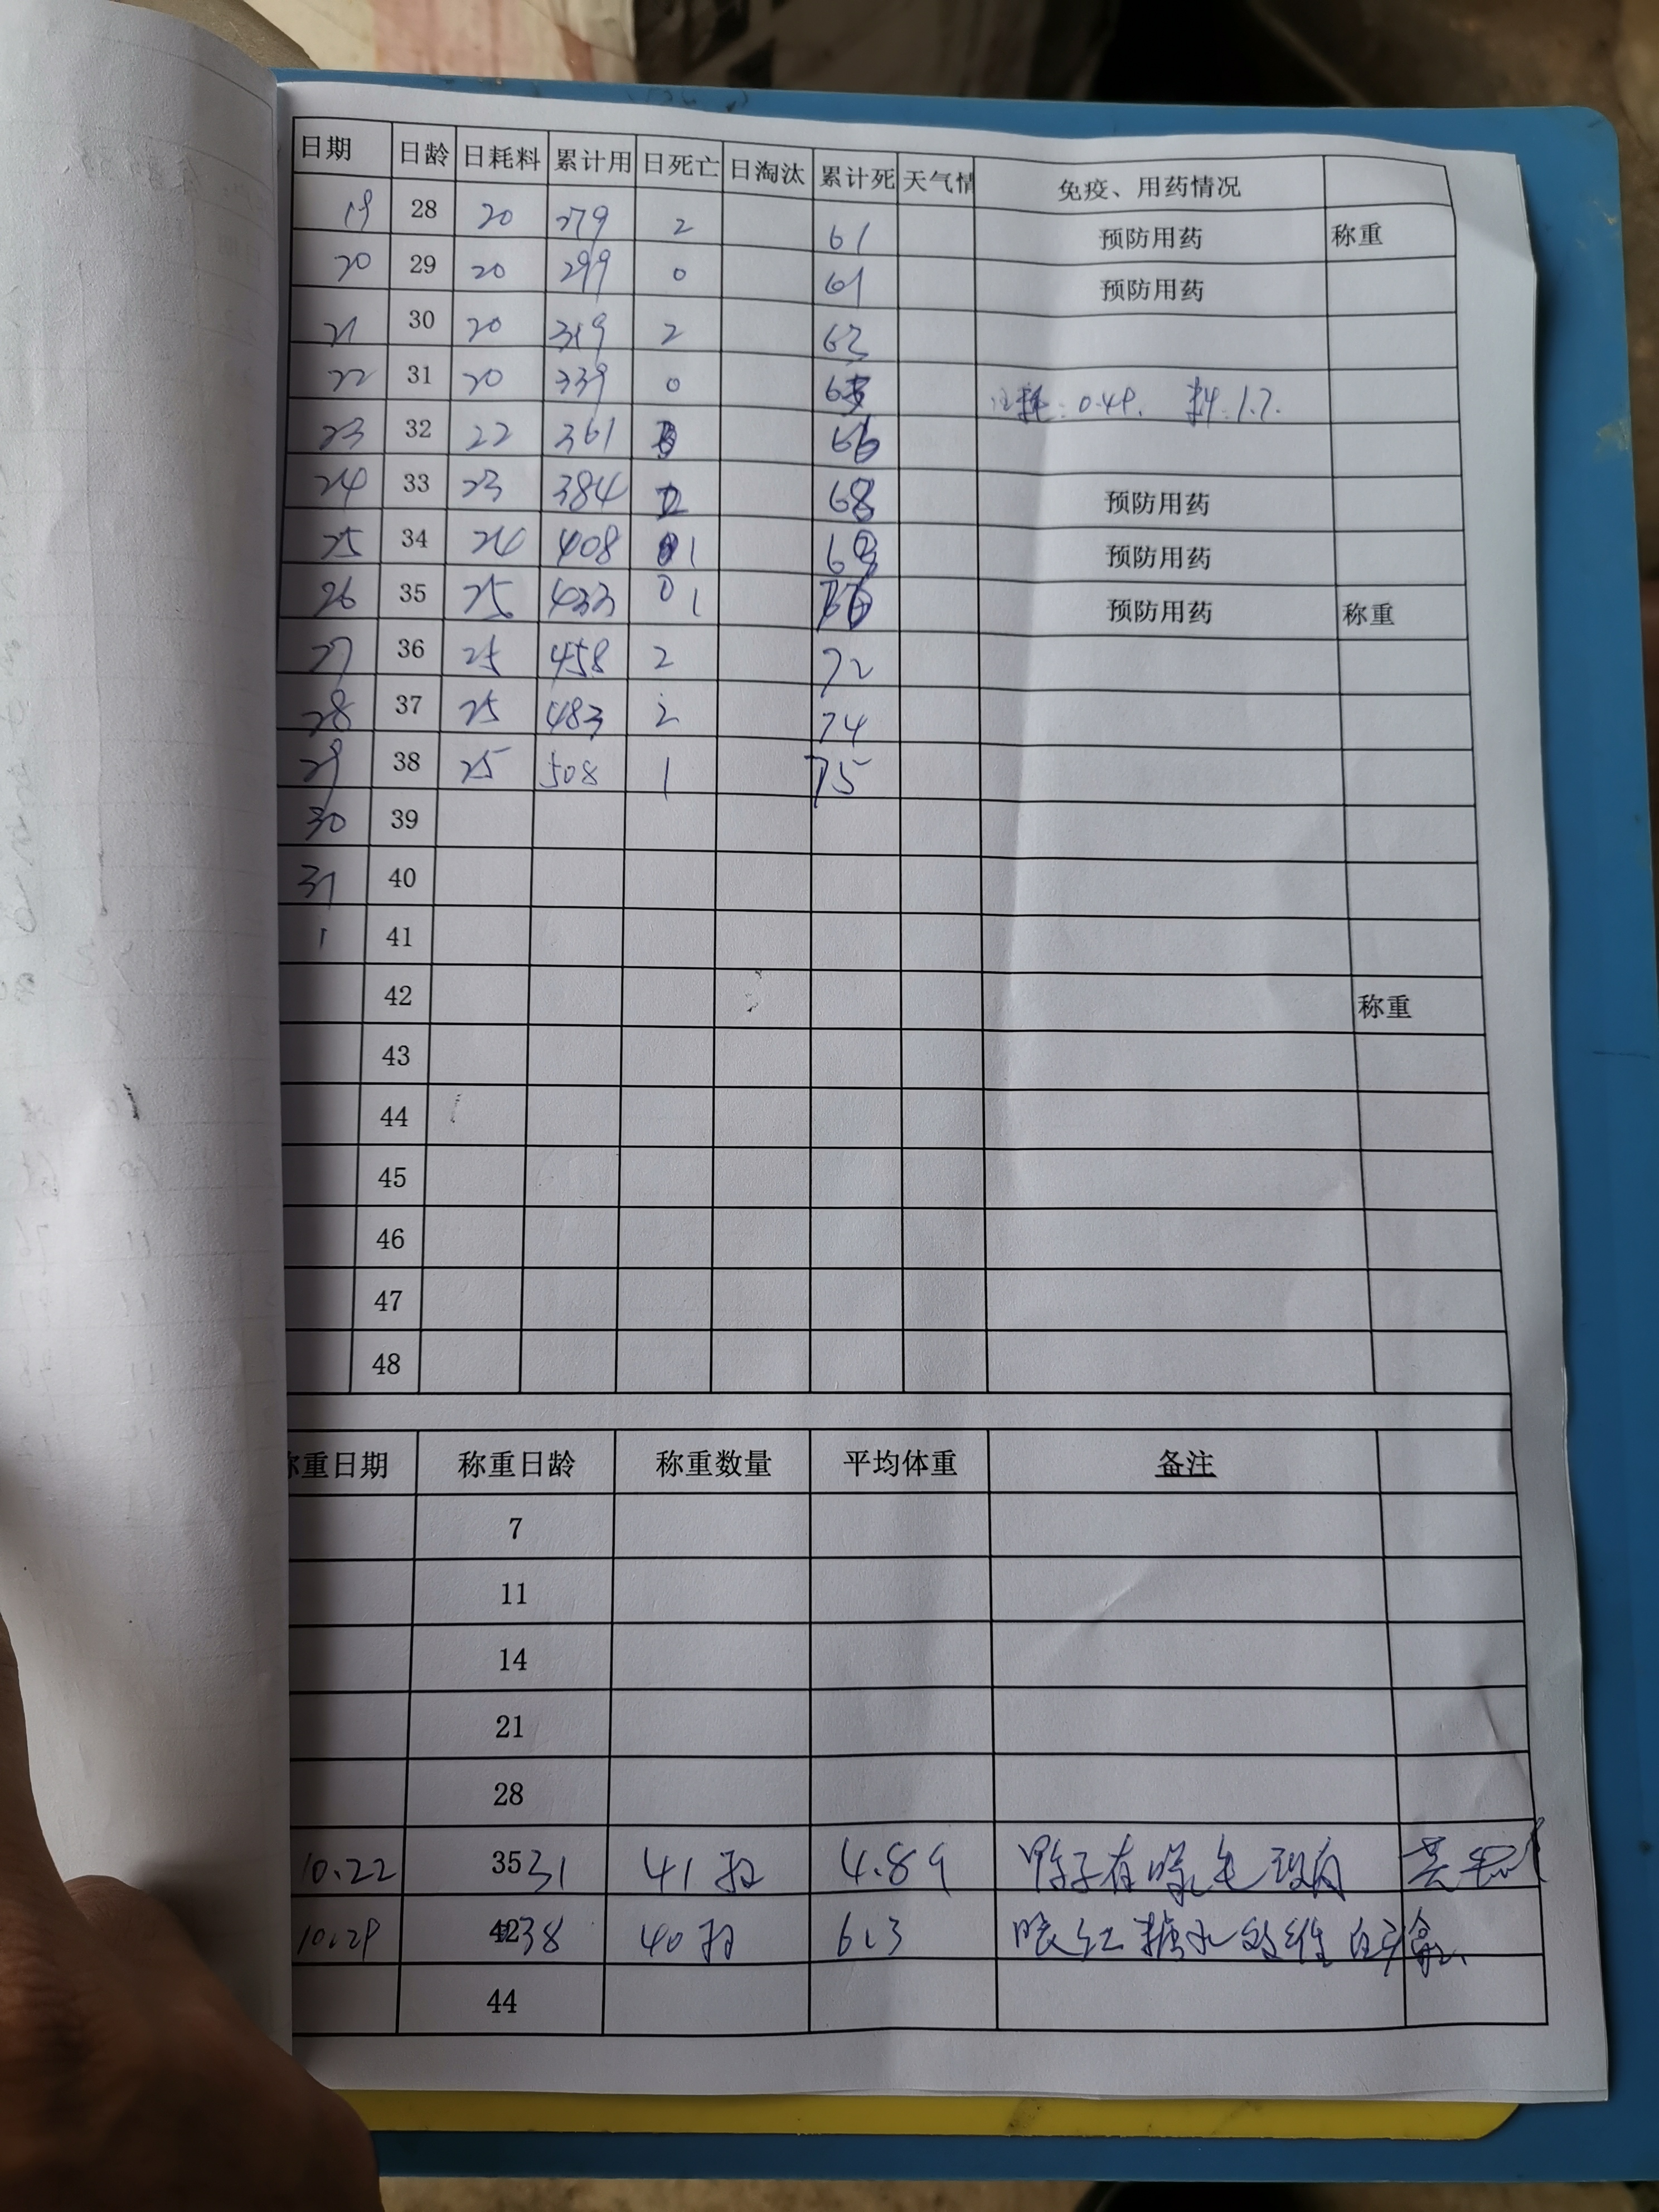 日期 日龄 日耗料 累计用 日死亡 日淘汰 累计死 天气情 免疫、用药情况
19 28 20 279 2 61 预防用药 称重
20 29 20 299 0 61 预防用药
21 30 20 319 2 63
22 31 20 339 0 63 0.49. 料:1.7.
23 32 22 361 3 66
24 33 23 384 2 68 预防用药
25 34 24 408 1 69 预防用药
26 35 25 433 1 预防用药 称重
27 36 25 458 2 72
28 37 25 483 2 74
29 38 25 508 1 75
30 39
31 40
1 41
42 称重
43
44
45
46
47
48
称重日期 称重日龄 称重数量 平均体重 备注
7
11
14
21
28
10.22 35 31 41 4.89 鸭子有啄毛现象
10.29 42 38 40 6.3 喂红糖水
44